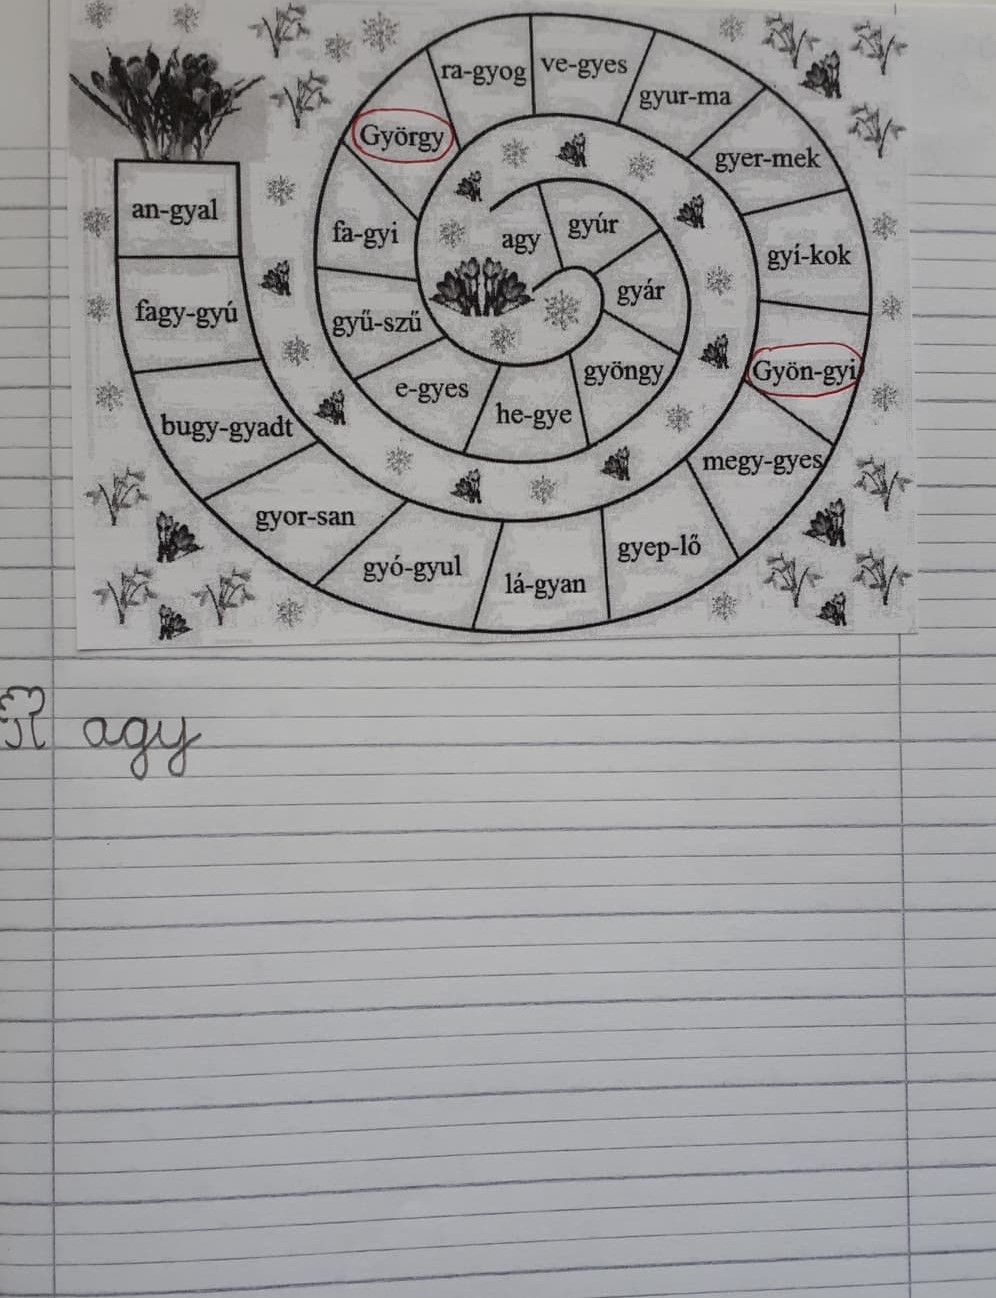 agy
gyúr
gyár
gyöngy
he-gye
e-gyes
gyű-szű
fa-gyi
György
ra-gyog
ve-gyes
gyur-ma
gyer-mek
gyí-kok
Gyön-gyi
megy-gyes
gyep-lő
lá-gyan
gyó-gyul
gyor-san
bugy-gyadt
fagy-gyú
an-gyal
agy